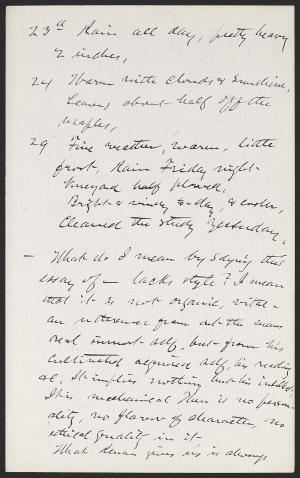 23d Rain all day, pretty heavy
2 inches,
24 Warm with clouds & sunshine,
Leaves about half off the
maples,
29 Fine weather, warm, little
frost. Rain Friday night-
Vineyard half plowed,
Bright & windy to-day, & cooler,
Cleaned the study yesterday,
— What do I mean by saying this
essay of — lacks style? I mean
that it is not organic, vital-
an utterance from out the mans
real inmost self, but from his
cultivated acquired self, his reading
&c, It implies nothing but his intellect,
It is mechanical. There is no person-
ality, no flavor of character, no
ethical quality in it.
What gives us is always